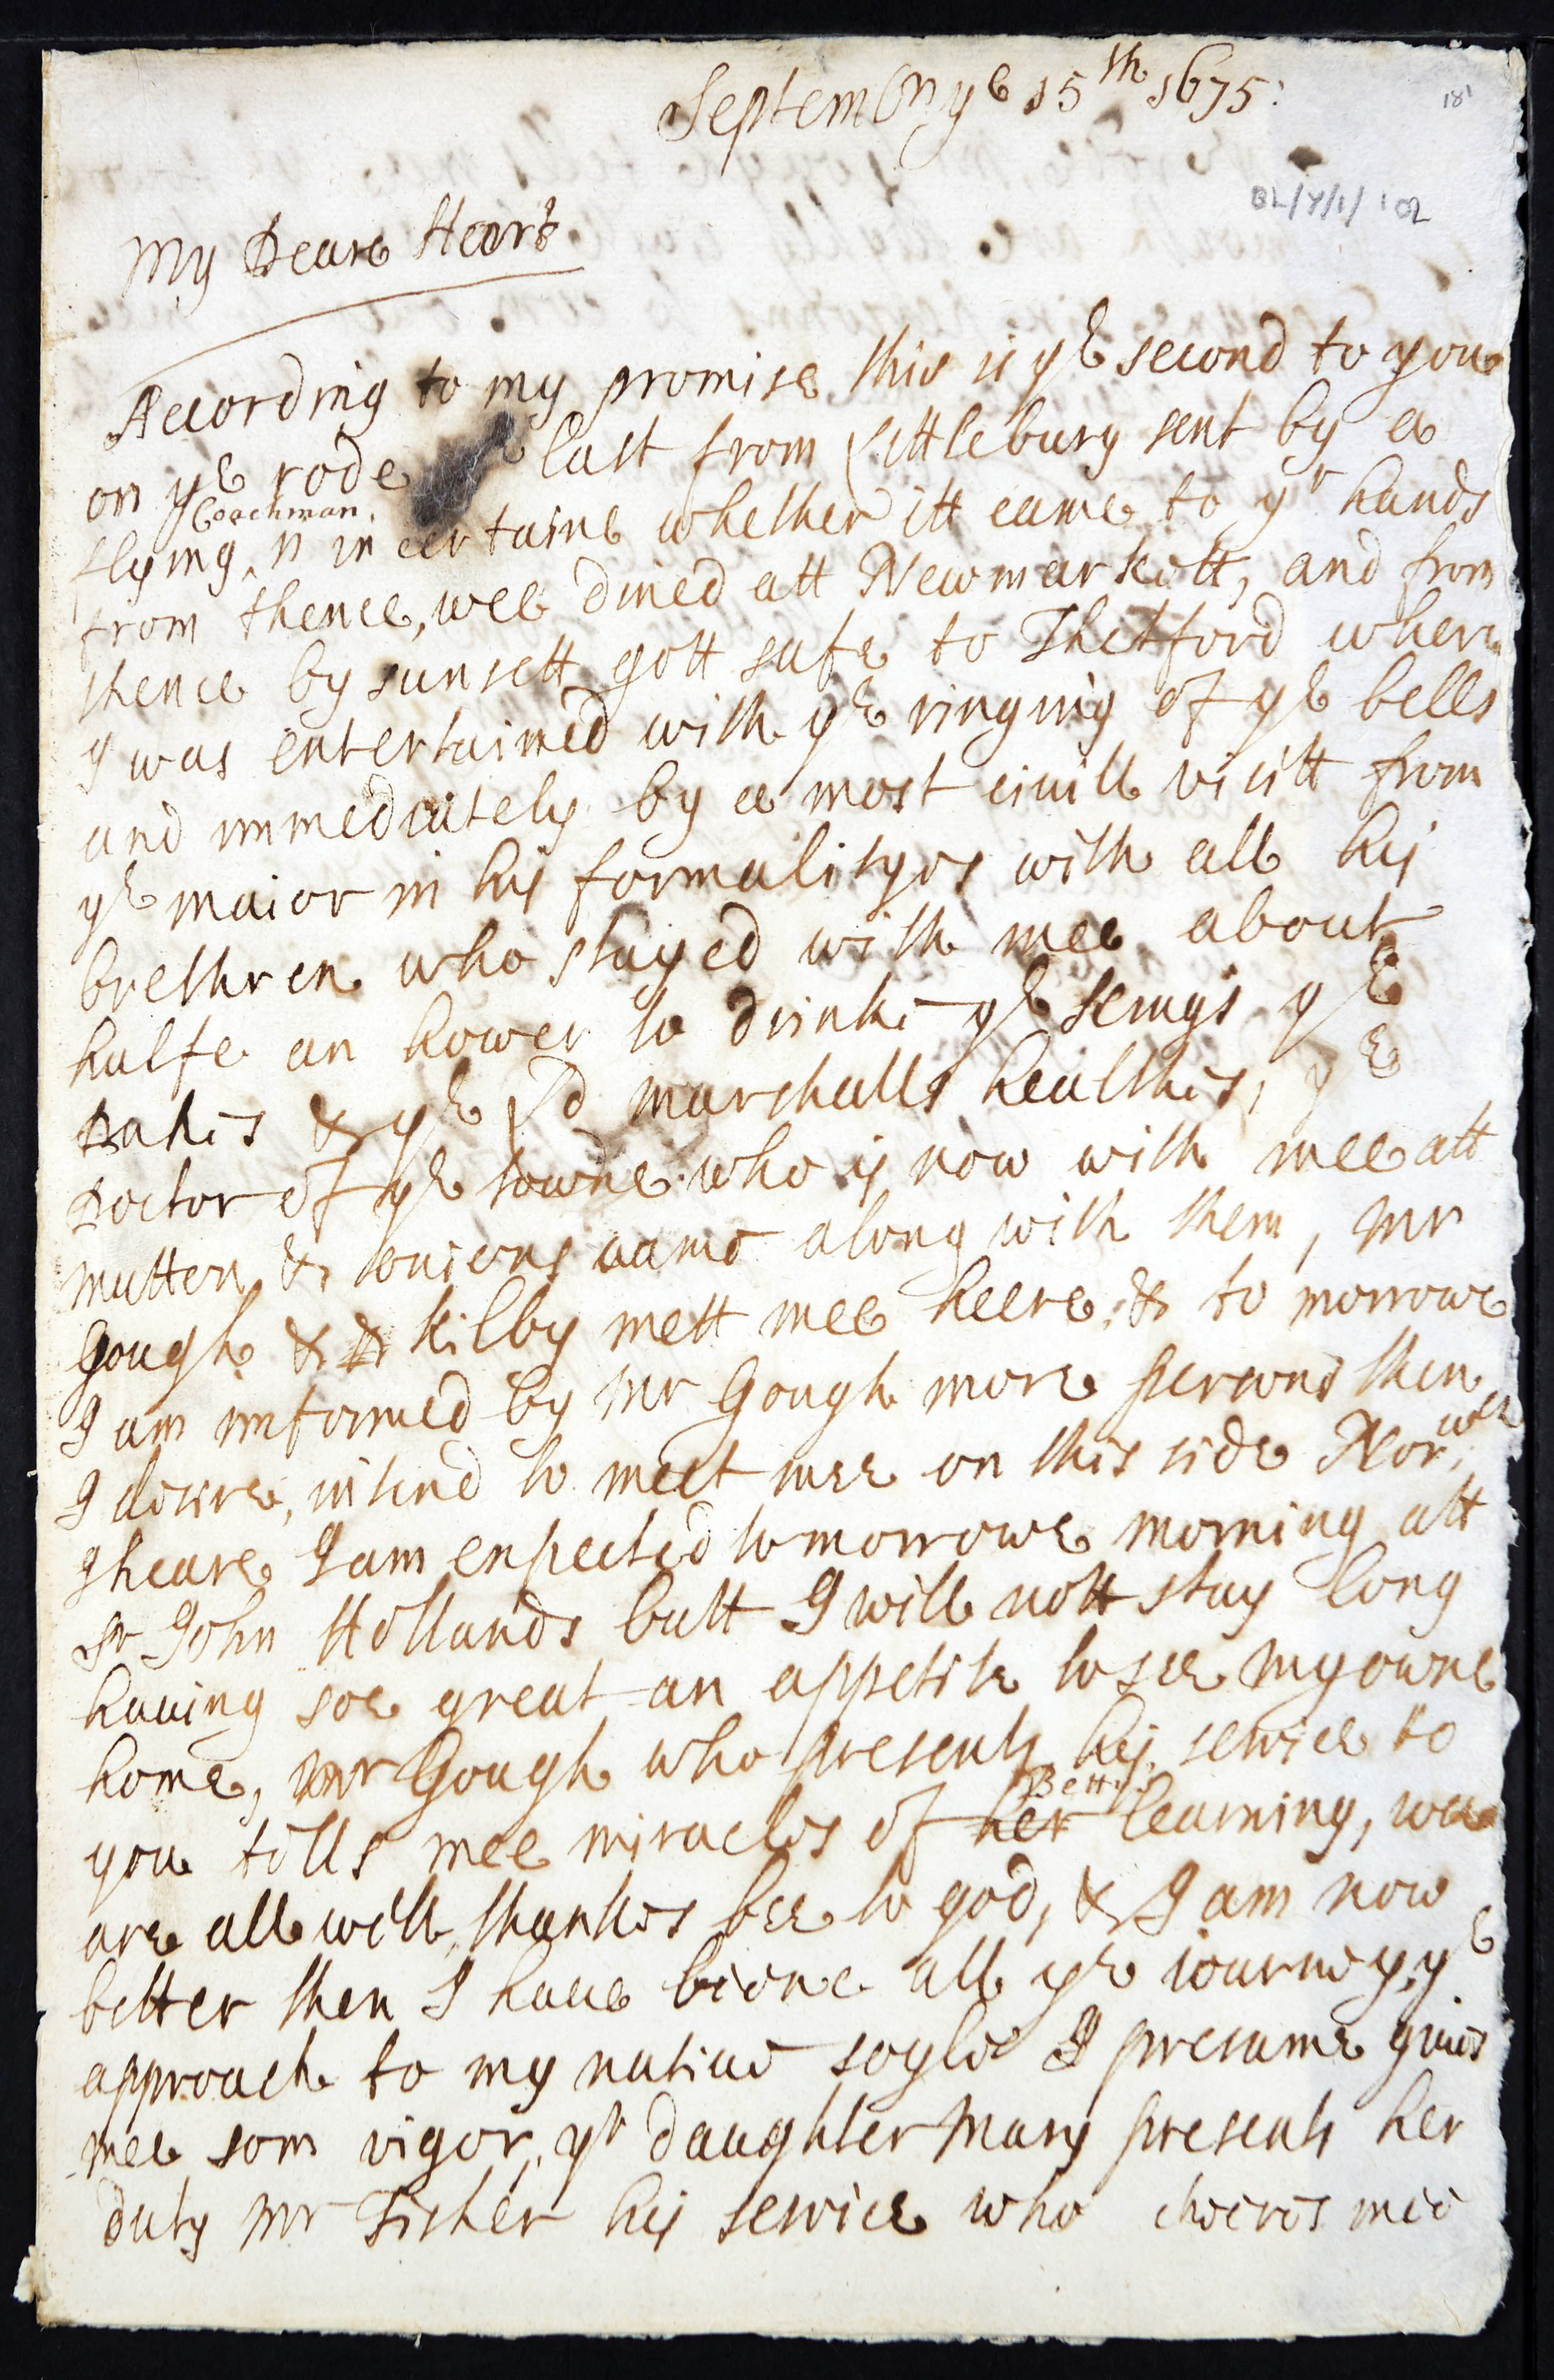 Septembr ye 15th 1675:
181
BL/Y/1/102
My Deare Heart
According to my promise this is ye second to you
on ye rode last from Littlebury sent by a
Coachman
flying is incertaine whether itt came to yr hands
from thence, wee dined att Newmarkett, and from
thence by sunsett gott safe to Thetford where
I was entertained with ye ringing of ye bells
and immediately by a most ciuill visitt from
ye maior in his formalityes with all his
brethren who stayed with mee about
halfe an hower to drinke ye kings ye
Dukes & ye Ld marshalls healthes, ye
Doctor of ye towne who is now with mee att
mutton & onions came along with them, Mr
Gough & Kilby mett mee heere & to morrowe
I am informed by Mr Gough more persons then
I desire, intend to meet mee on this side Norwch
I heare I am expected to morrowe morning att
Sr John Hollands butt I will nott stay long
hauing soe great an appetite to see my owne
home, Mr Gough who presents his seruice to
Bettys
you tells mee miracles of her learning, wee
are all well, thankes bee to god, & I am now
better then I haue beene all ye iourney, ye
approach to my natiue soyle I presume giues
mee som vigor, yr daughter Mary presents her
duty Mr Fisher his seruice who cheeres mee